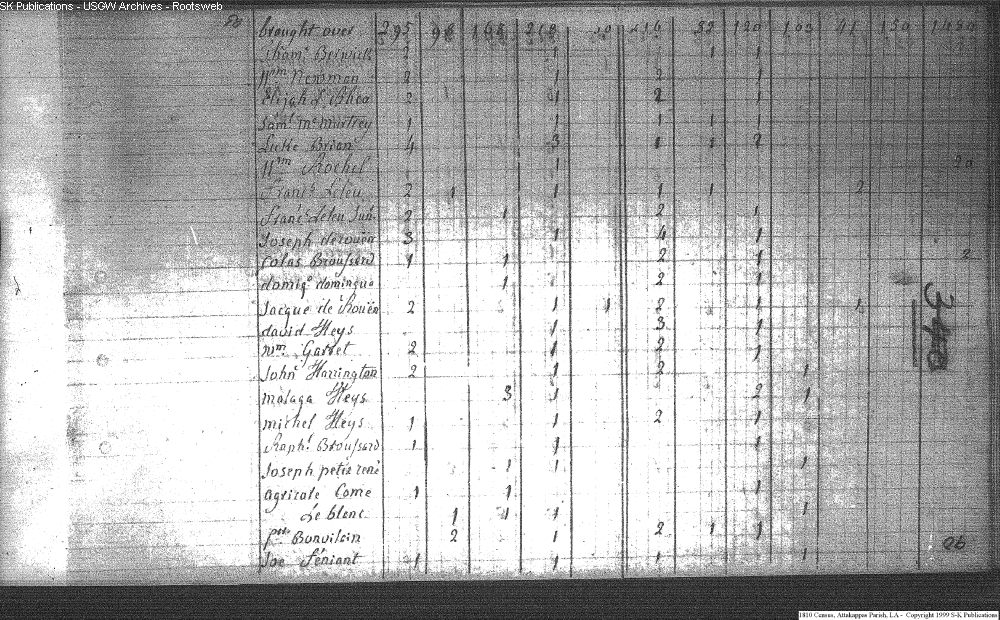 SK Publications - USGW Archives - Rootsweb
brought over 295 98 168 218 214 32 120 103 41 150
Tham.s Berwick 2 1 1 1
Wm Newman 2 1 2 1
Elijah 2 1 2 1
Sam.l Mc Murtrey 1 1 1 1 1
Luke Brian 4 3 1 1 2
Wm Rochel 1 20
Franc.s Leleu 2 1 1 1 1 2
Franc.s Leleu Jun. 2 1 2 1
Joseph derouën 3 1 4 1
Colas Broussard 1 1 2 1 2
domiq.e domingue 1 2 1
Jacque de Rouën 2 1 1 8 1 1
david Heys 1 3 1
Wm. Garret 2 1 2 1
John Harrington 2 1 2 1
malaga Heys 3 1 2 1
michel Heys 1 1 2 1
Raph.l Broussard 1 1 1
Joseph petit rené 1 1 1
agricole Come 1 1 1
Le blenc 1 1 1 1
Bonvilein 2 1 2 1 1 26
Joe Séniant 1 1 1 1
1810 Census, Attakappas Parish, LA - Copyright 1999 S-K Publications